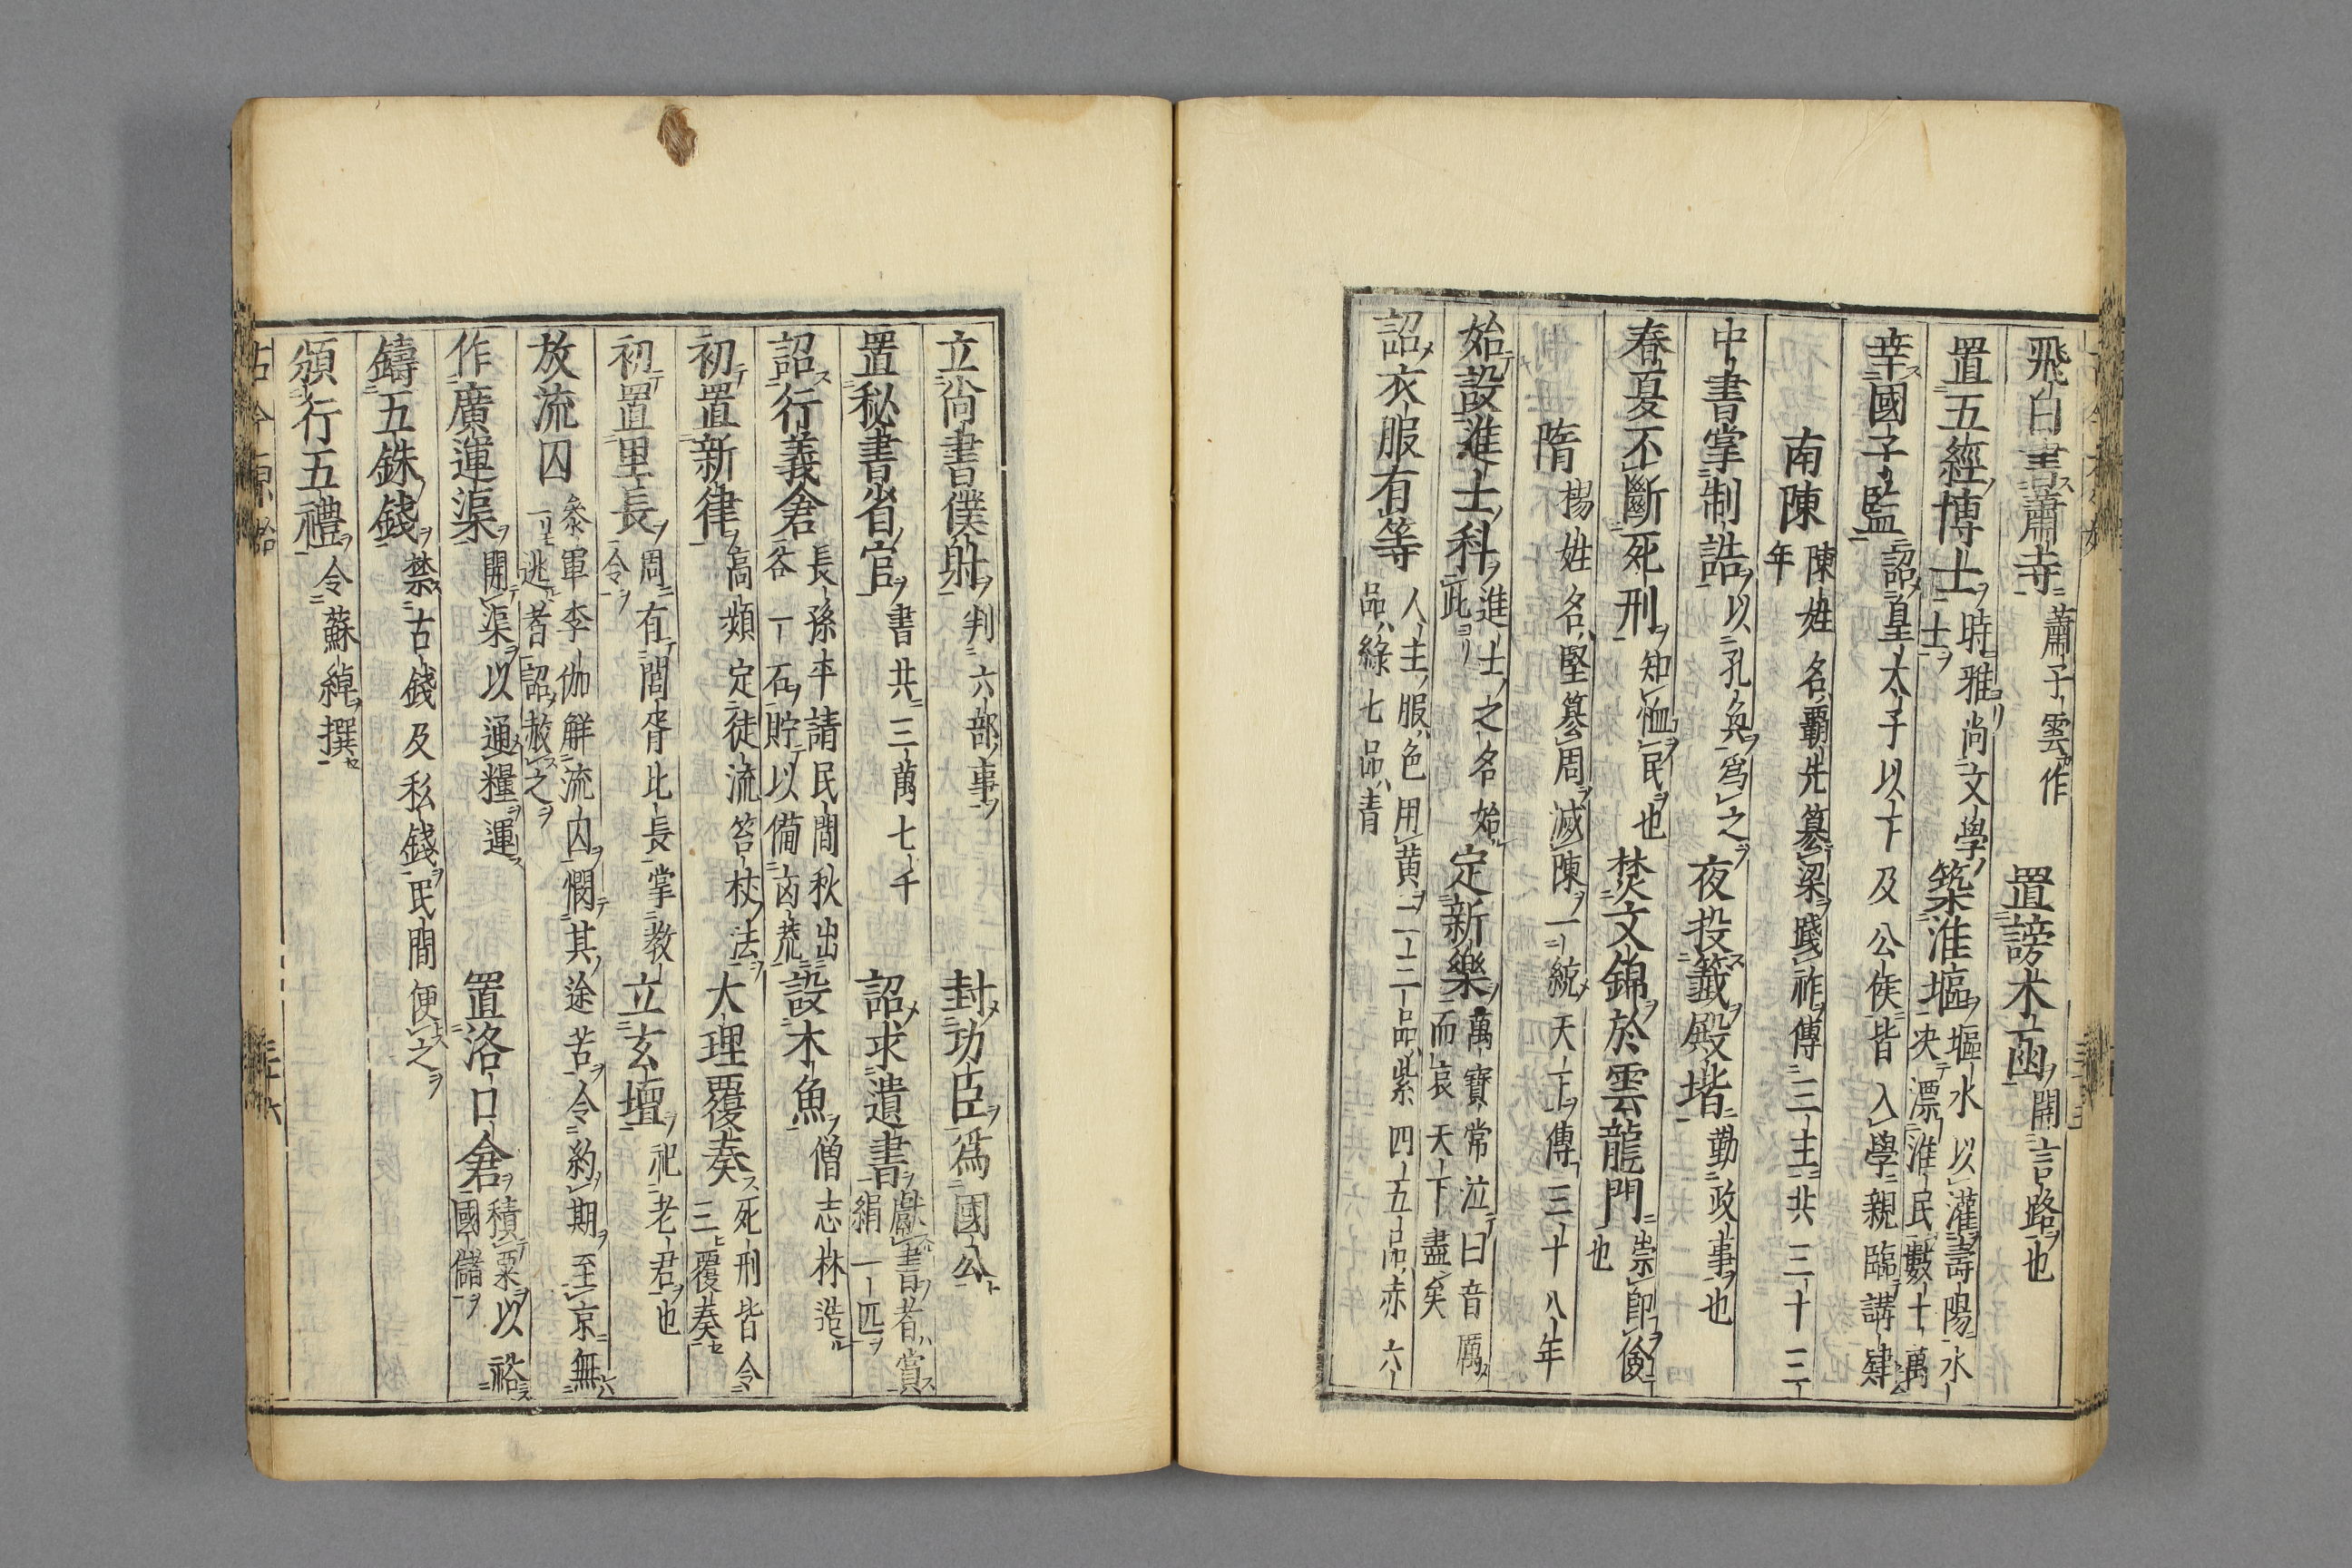 飛白書蕭寺 蕭子雲作 置謗木函 開言路也
置五經博士 時雅尚文學 士 築淮堰 堰水以灌壽陽水 決漂淮民數十萬
幸國子監 詔皇太子以下及公侯皆入學親臨講肄
南陳 陳姓名霸先篡梁踐祚傳三主共三十三 年
中書掌制誥 以孔奐爲之 夜投籤殿堦 勤政事也
春夏不斷死刑 知恤民也 焚文錦於雲龍門 崇節儉 也
隋 楊姓名堅篡周滅陳一統天下傳三十八年
始設進士科 進士之名始 此 定新樂 萬寶常泣曰音厲 而哀天下盡矣
詔衣服有等 人主服色用黃一二三品紫四五品赤六 品綠七品青
立尙書僕射 判六部事 封功臣爲國公
置秘書省官 書共三萬七千 詔求遺書 獻書者賞 絹一匹
詔行義倉 長孫平請民間秋出 各一石貯以備凶荒 設木魚 僧志林造
初置新律 高熲定徒流笞杖法 大理覆奏 死刑皆令 三覆奏
初置里長 周有閭胥比長掌教 令 立玄壇 祀老君也
放流囚 參軍李伽解流囚憫其途苦令約期至京無 一逃者詔赦之
作廣運渠 開渠以通糧運 置洛口倉 積粟以裕 國儲
鑄五銖錢 禁古錢及私錢民間便之
頒行五禮 令蘇綽撰
古今原始 三十六